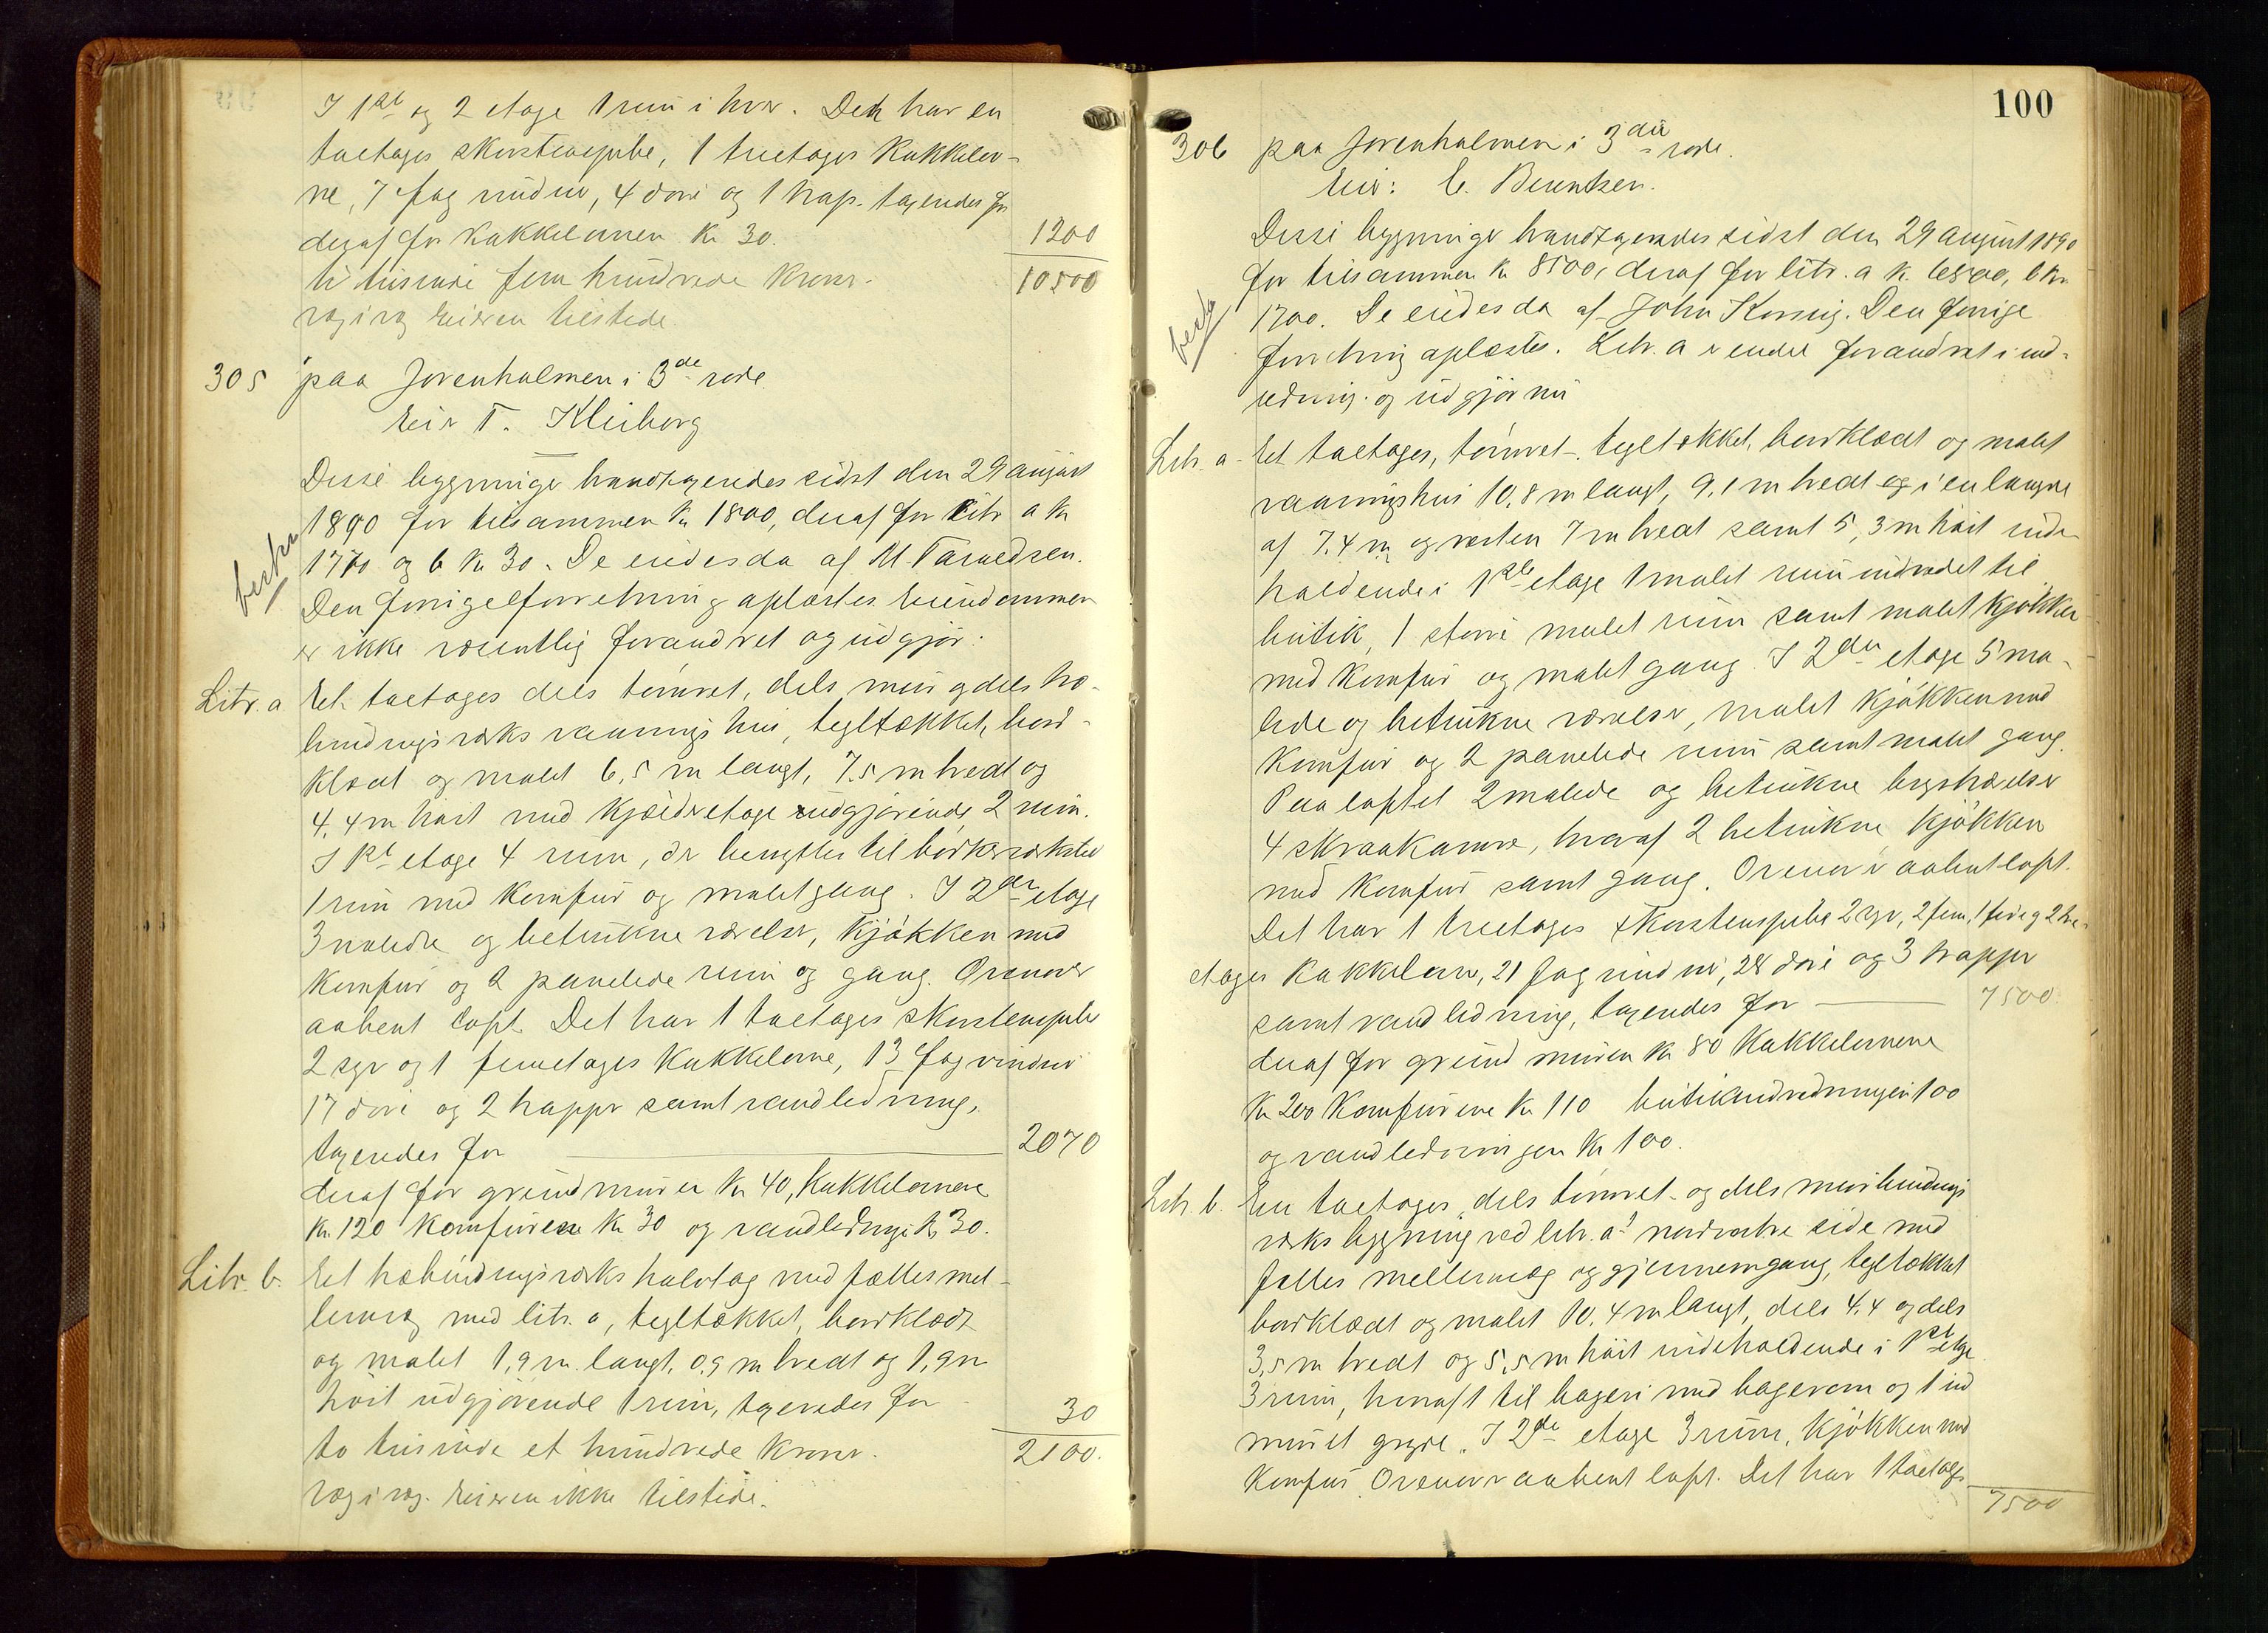 I 1ste og 2 etage 1 rum i hver. Det har en
toetages skorstenspibe, 1 treetages kakkelov-
ne, 7 fag vinduer, 4 döre og 1 trap. taxeredes for
deraf for kakkelovnen Kr 30.
1200
ti tusinde fem hundrede kroner.
10500
væg i væg Eieren tilstede
305 paa Sorenholmen i 3de rode.
Eier T. Kleiberg
Disse bygninger brandtaxeredes sidst den 29 august
1890 for tilsammen Kr 1800, deraf for Litr a Kr
1770 og b Kr 30. De eiedes da af
Den forrige forretning oplæstes. Eiendommen
er ikke væsentlig forandret og udgjör:
Litr. a Et toetages dels tömret, dels mur og dels træ-
bindingsværks vaaningshus, tegltækket, bord-
klædt og malet 6,5 m langt, 7,5 m bredt og
4,4 m höit med kjælderetage udgjörende 2 rum.
I 1ste etage 4 rum, der benyttes til bödkerværksted
1 rum med komfur og malet gang. I 2den etage
3 malede og betrukne værelser, kjökken med
komfur og 2 panelede rum og gang. Ovenover
aabent loft. Det har 1 toetages skorstenspibe
2 syv og 1 femetages kakkelovne, 13 fag vinduer
17 döre og 2 trapper samt vandledning,
taxeredes for
2070
deraf for grundmuren Kr 40, kakkelovnene
Kr. 120 komfurene Kr 30 og vandledningen Kr 30.
Litr. b. Et træbindingsværks halvtag med fælles mel-
lemvæg med litr. a, tegltækket, bordklædt
og malet 1,9 m. langt, 0,9 m bredt og 1,9 m
höit udgjörende 1 rum, taxeredes for
30
to tusinde et hundrede kroner.
2100.
væg i væg. Eieren ikke tilstede.
100
306 paa Sorenholmen i 3die rode.
Eier: C. Berentsen.
Disse bygninger brandtaxeredes sidst den 29 august 1890
for tilsammen Kr 8500, deraf for litr. a Kr. 6800, b Kr.
1700. De eiedes da af John Kornig. Den forrige
forretning oplæstes. Litr. a er endel forandret i ind-
redning og udgjör nu
Litr. a Et toetages, tömret, tegltækket, bordklædt og malet
vaaningshus 10,8 m langt, 9,1 m bredt og i en længde
af 7,4 m og resten 7 m bredt samt 5,3 m höit inde-
holdende i 1ste etage 1 malet rum indredet til
butik, 1 större malet rum samt malet kjökken
med komfur og malet gang. I 2den etage 5 ma-
lede og betrukne værelser, malet kjökken med
komfur og 2 panelede rum samt malet gang.
Paa loftet 2 malede og betrukne kvistværelser
4 skraakamre, hvoraf 2 betrukne kjökken
med komfur samt gang. Ovenover aabent loft.
Det har 1 treetages skorstenspibe 2 syv, 2 fem, 1 fire og 2 tre-
etages kakkelovne, 21 fag vinduer, 28 döre og 3 trapper
samt vandledning, taxeredes for
7500.
deraf for grundmuren Kr 80 kakkelovnene
Kr 200 komfurene Kr 110 butikindredningen 100
og vandledningen Kr 100.
Litr. b. En toetages, dels tömret- og dels murbindings
værks bygning ved litr. a's nordvestre side med
fælles mellemvæg og gjennemgang, tegltækket
bordklædt og malet 10,4 m langt, dels 4,4 og dels
3,5 m bredt og 5,5 m höit indeholdende i 1ste etage
3 rum, hvoraf 1 til bageri med bagerovn og 1 ind
muret gryde. I 2den etage 3 rum, kjökken med
komfur. Ovenover aabent loft. Det har 1 toetages
7500